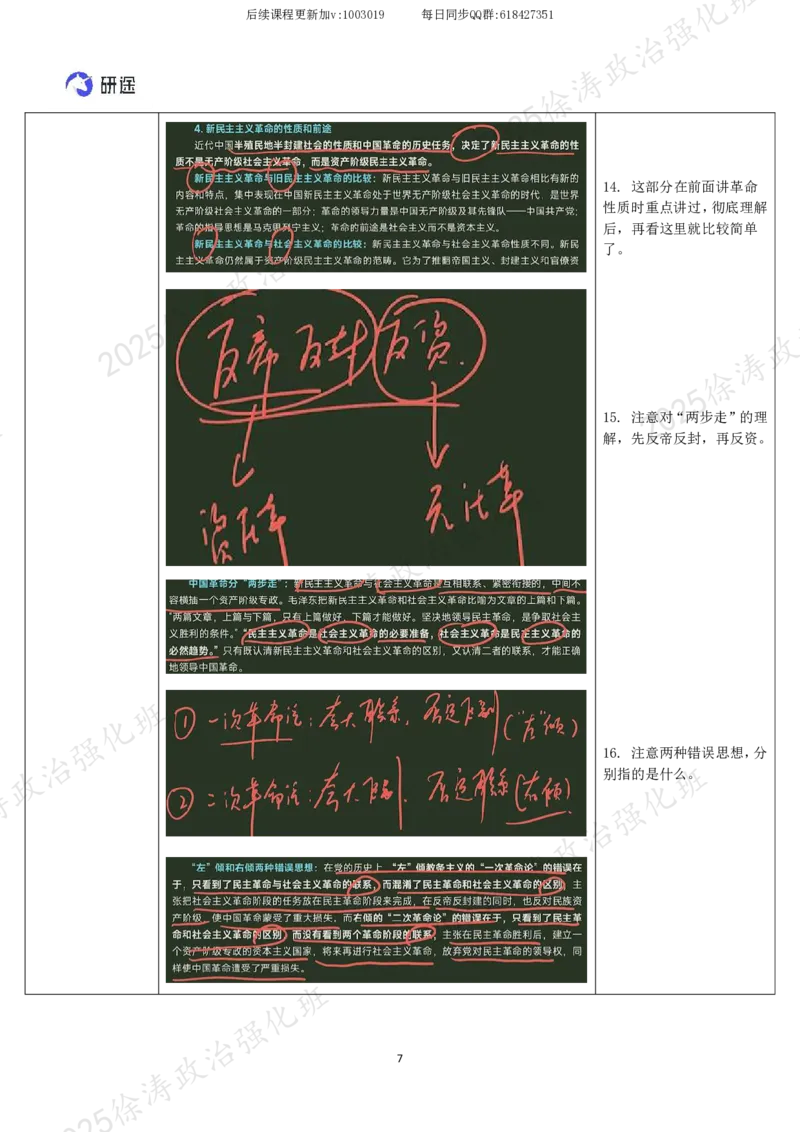 后续课程更新加v:1003019 每日同步QQ群:618427351
研途
4. 新民主主义革命的性质和前途
近代中国半殖民地半封建社会的性质和中国革命的历史任务，决定了新民主主义革命的性
质不是无产阶级社会主义革命，而是资产阶级民主主义革命。
新民主主义革命与旧民主主义革命的比较：新民主主义革命与旧民主主义革命相比有新的
内容和特点，集中表现在中国新民主主义革命处于世界无产阶级社会主义革命的时代，是世界
无产阶级社会主义革命的一部分；革命的领导力量是中国无产阶级及其先锋队——中国共产党；
革命的指导思想是马克思列宁主义；革命的前途是社会主义而不是资本主义。
新民主主义革命与社会主义革命的比较：新民主主义革命与社会主义革命性质不同。新民
主主义革命仍然属于资产阶级民主主义革命的范畴。它为了推翻帝国主义、封建主义和官僚资
14. 这部分在前面讲革命
性质时重点讲过，彻底理解
后，再看这里就比较简单
了。
反帝 反封 反资
资民革 无社革
15. 注意对“两步走”的理
解，先反帝反封，再反资。
中国革命分“两步走”：新民主主义革命与社会主义革命是互相联系、紧密衔接的，中间不
容横插一个资产阶级专政。毛泽东把新民主主义革命和社会主义革命比喻为文章的上篇和下篇。
“两篇文章，上篇与下篇，只有上篇做好，下篇才能做好。坚决地领导民主革命，是争取社会主
义胜利的条件。”“民主主义革命是社会主义革命的必要准备，社会主义革命是民主主义革命的
必然趋势。”只有既认清新民主主义革命和社会主义革命的区别，又认清二者的联系，才能正确
地领导中国革命。
① 一次革命论：夸大联系，否定区别（“左”倾）
② 二次革命论：夸大区别，否定联系（右倾）
16. 注意两种错误思想，分
别指的是什么。
“左”倾和右倾两种错误思想：在党的历史上，“左”倾教条主义的“一次革命论”的错误在
于，只看到了民主革命与社会主义革命的联系，而混淆了民主革命和社会主义革命的区别，主
张把社会主义革命阶段的任务放在民主革命阶段来完成，在反帝反封建的同时，也反对民族资
产阶级，使中国革命蒙受了重大损失。而右倾的“二次革命论”的错误在于，只看到了民主革
命和社会主义革命的区别，而没有看到两个革命阶段的联系，主张在民主革命胜利后，建立一
个资产阶级专政的资本主义国家，将来再进行社会主义革命，放弃党对民主革命的领导权，同
样使中国革命遭受了严重损失。
7
2025徐涛政治强化班